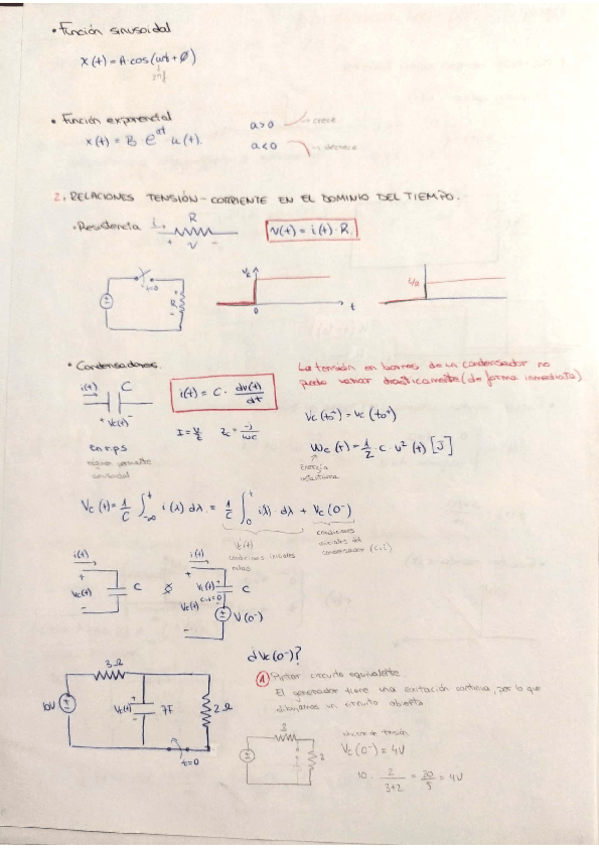 • Función sinusoidal
x(t) = A·cos(ωt + Ø)
2πf
• Función exponencial
x(t) = B · e^at u(t).
a>0 → crece
a<0 → decrece
2. RELACIONES TENSIÓN - CORRIENTE EN EL DOMINIO DEL TIEMPO.
• Resistencia i R
+ v -
v(t) = i(t) · R.
t=0 R
0 t
• Condensadores.
i(t) C
+ Vc(t) -
i(t) = C · dv(t)/dt
La tensión en bornes de un condensador no
puede variar drásticamente (de forma inmediata)
Vc(t0-) = Vc(t0+)
En r.p.s
regimen permanente
sinusoidal
I = V/Z Zc = -j/ωC
Wc(t) = 1/2 · C · v²(t) [J]
Energía
Vc(t) = 1/C ∫-∞^t i(λ) dλ = 1/C ∫0^t i(λ) · dλ + Vc(0-)
condiciones iniciales
nulas
condiciones
iniciales del
condensador
i(t) i(t)
+ +
Vc(t) C Vc(t) C
- - V(0-)
¿Vc(0-)?
① Pintar circuito equivalente
El generador tiene una exitación continua, por lo que
dibujamos un circuito abierto
3Ω
10V Vc(t) 7F 2Ω
t=0
3
2
Vc(0-) = 4V
10 · 2/(3+2) = 20/5 = 4V